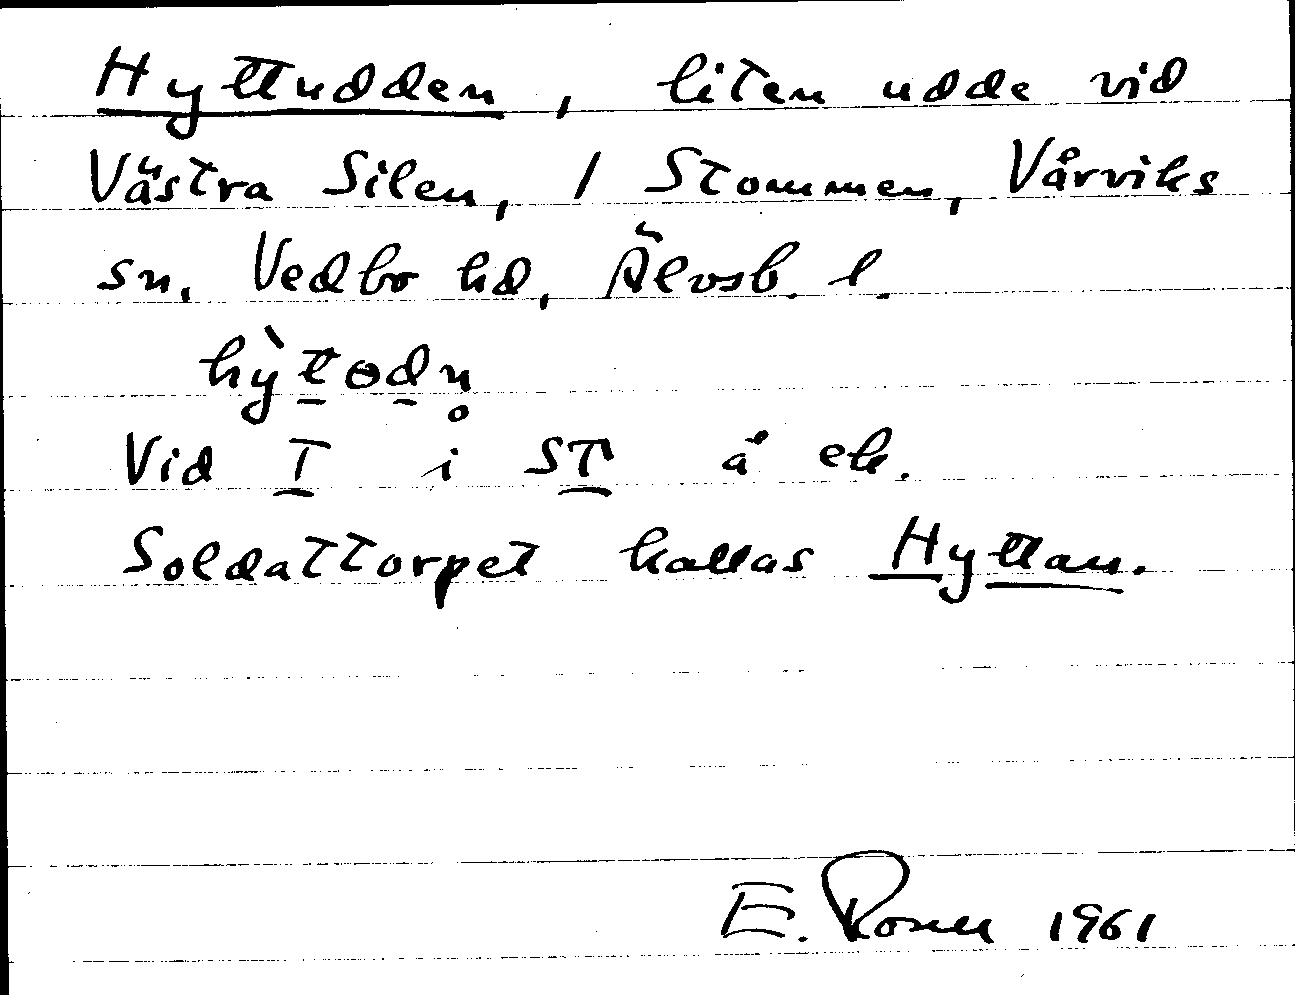 Hyttudden, liten udde vid
Västra Silen, / Stommen, Vårviks
sn. Vedbo hd, Älvsb. l.
hy̏t̲ɵd̲n̥
Vid T̲ i ST̲ å ek.
Soldattorpet kallas Hyttan.
E. 1961